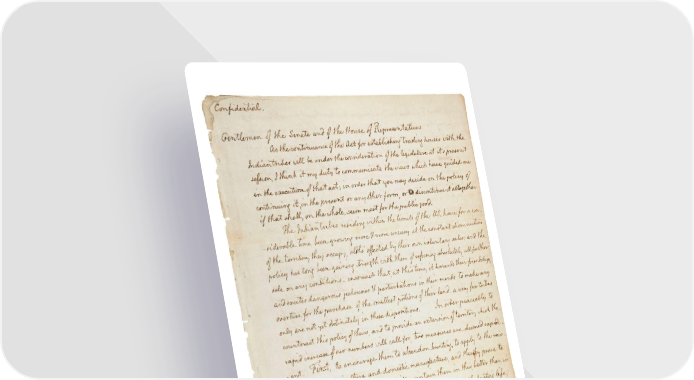 Confidential.
Gentlemen of the Senate and of the House of Representatives
As the continuance of the Act for establishing trading houses with the
Indian tribes will be under the consideration of the legislature at it's present
session, I think it my duty to communicate the views which have guided me
in the execution of that act; in order that you may decide on the policy of
continuing it, in the present or any other form, or discontinue it altogether
if that shall, on the whole, seem most for the public good.
The Indian tribes residing within the limits of the US. have for a con-
-siderable time been growing more & more uneasy at the constant diminution
of the territory they occupy, altho' effected by their own voluntary sales: and the
policy has long been gaining strength with them of refusing absolutely all further
sale on any conditions, insomuch that, at this time, it hazards their friendship,
and excites dangerous jealousies & perturbations in their minds to make any
overture for the purchase of the smallest portions of their land. a very few tribes
only are not yet obstinately in these dispositions. In order peaceably to
counteract this policy of theirs, and to provide an extension of territory which the
rapid increase of our numbers will call for, two measures are deemed expedi-
-ent. First, to encourage them to abandon hunting, to apply to the
and domestic manufacture, and thereby prove to